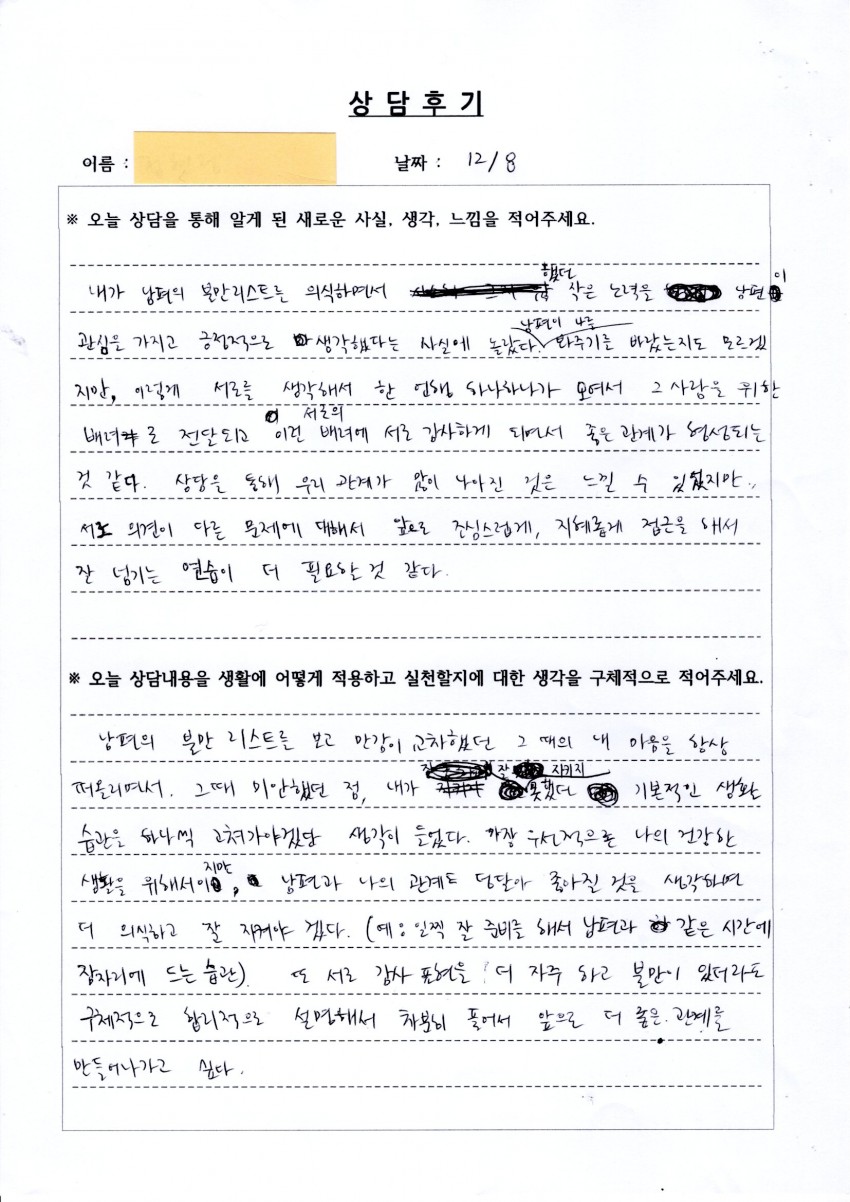 상 담 후 기
이름 :
날짜 : 12/8
※ 오늘 상담을 통해 알게 된 새로운 사실, 생각, 느낌을 적어주세요.
내가 남편의 불만리스트를 의식하면서 했던 작은 노력을 남편이
관심을 가지고 긍정적으로 생각했다는 사실에 놀랐다. 남편이 나를 봐주기를 바랐는지도 모르겠
지만, 이렇게 서로를 생각해서 한 언행 하나하나가 모여서 그 사람을 위한
배녀로 전달되고 이런 서로의 배녀에 서로 감사하게 되면서 좋은 관계가 형성되는
것 같다. 상담을 통해 우리 관계가 많이 나아진 것은 느낄 수 있었지만,
서로 의견이 다른 문제에 대해서 앞으로 조심스럽게, 지혜롭게 접근을 해서
잘 넘기는 연습이 더 필요한 것 같다.
※ 오늘 상담내용을 생활에 어떻게 적용하고 실천할지에 대한 생각을 구체적으로 적어주세요.
남편의 불만 리스트를 보고 만감이 교차했던 그 때의 내 마음을 항상
떠올리면서. 그때 미안했던 점, 내가 잘 지키지 못했던 기본적인 생활
습관을 하나씩 고쳐가야겠단 생각이 들었다. 가장 우선적으론 나의 건강한
생활을 위해서이지만, 남편과 나의 관계도 덩달아 좋아질 것을 생각하면
더 의식하고 잘 지켜야 겠다. (예: 일찍 잘 준비를 해서 남편과 같은 시간에
잠자리에 드는 습관). 또 서로 감사 표현을 더 자주 하고 불만이 있더라도
구체적으로 합리적으로 설명해서 차분히 풀어서 앞으로 더 좋은 관계를
만들어나가고 싶다.